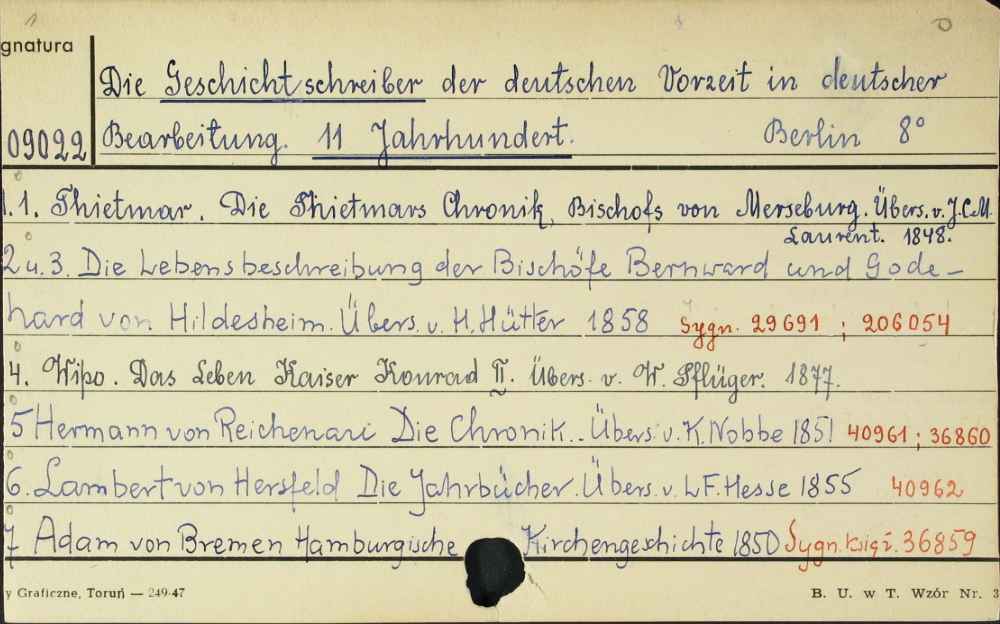 gnatura
Die Geschichtschreiber der deutschen Vorzeit in deutscher
09022 Bearbeitung. 11 Jahrhundert. Berlin 8°
1.1. Thietmar. Die Thietmars Chronik, Bischofs von Merseburg. Übers. v. J.C.M.
Laurent. 1848.
2 u. 3. Die Lebensbeschreibung der Bischöfe Bernward und Gode-
hard von Hildesheim. Übers. v. H. Hütter 1858 Sygn. 29691 ; 206054
4. Wipo. Das Leben Kaiser Konrad II. Übers. v. W. Pflüger. 1877.
5 Hermann von Reichenau Die Chronik.. Übers. v. K. Nobbe 1851 40961 ; 36860
6. Lambert von Hersfeld Die Jahrbücher. Übers. v. L F. Hesse 1855 40962
7 Adam von Bremen Hamburgische Kirchengeschichte 1850 Sygn. księż. 36859
y Graficzne, Toruń — 249-47 B. U. w T. Wzór Nr. 3